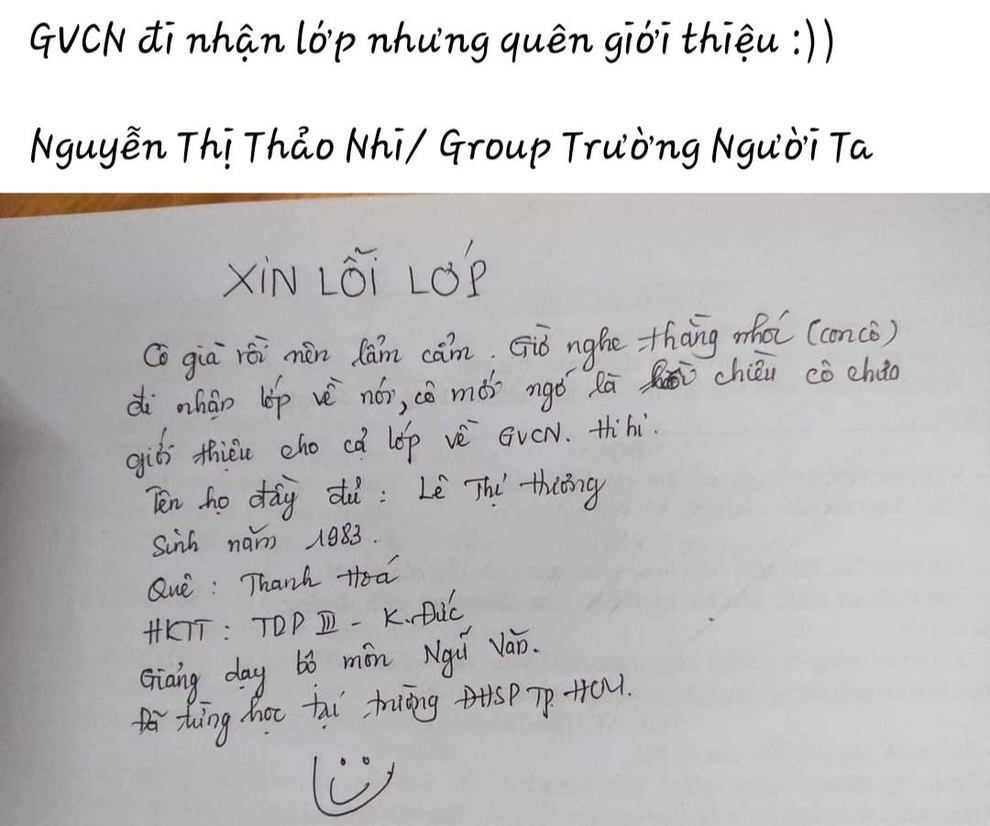 GVCN đi nhận lớp nhưng quên giới thiệu :))
Nguyễn Thị Thảo Nhi/ Group Trường Người Ta
XIN LỖI LỚP
Cô già rồi nên lẩm cẩm. Giờ nghe thằng nhóc (con cô)
đi nhận lớp về nói, cô mới ngớ là chiều cô chưa
giới thiệu cho cả lớp về GVCN. Hi hi.
Tên họ đầy đủ : Lê Thị Thương
Sinh năm 1983.
Quê : Thanh Hoá
HKTT : TDP III - K.Đức
Giảng dạy bộ môn Ngữ Văn.
Đã từng học tại trường ĐHSP TP. HCM.